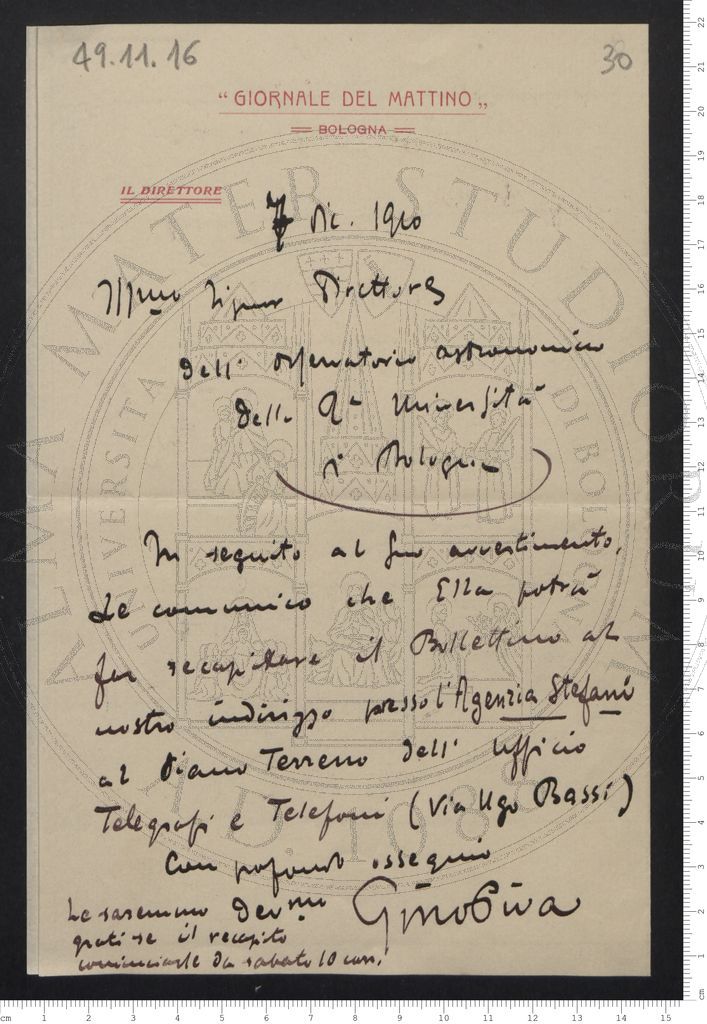 49.11.16
30
“ GIORNALE DEL MATTINO „
BOLOGNA
IL DIRETTORE
7 Dic. 1910
Ill.mo Signor Direttore
dell' osservatorio astronomico
della Ra Università
di Bologna
In seguito al suo avvertimento,
Le comunico che Ella potrà
far recapitare il Bollettino al
nostro indirizzo presso l'Agenzia Stefani
al Piano Terreno dell' Ufficio
Telegrafi e Telefoni (Via Ugo Bassi)
Con profondo ossequio
Dev.mo Gino Piva
Le saremmo
grati se il recapito
cominciasse da sabato 10 corr.
ALMA MATER STUDIORUM
UNIVERSITA DI BOLOGNA
A.D. 1088